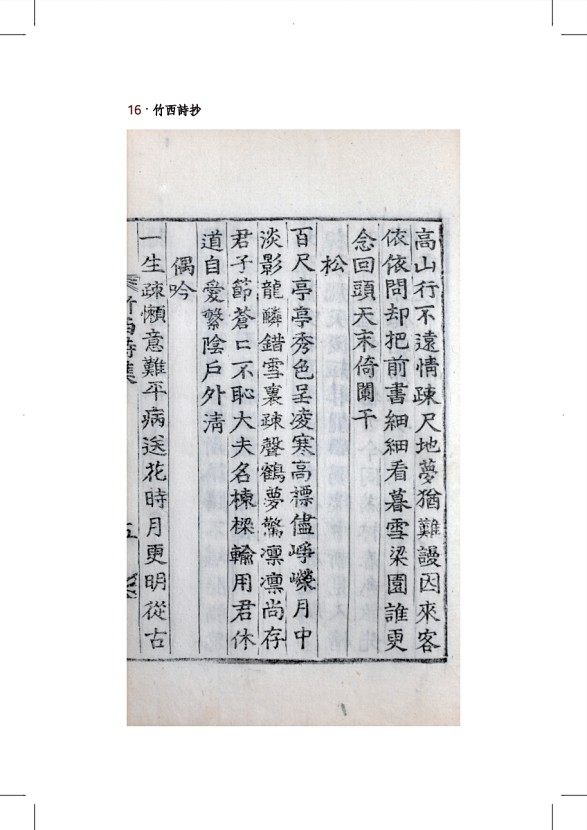 16·竹西詩抄
高山行不遠情疎尺地夢猶難謾因來客
依依問却把前書細細看暮雪梁園誰更
念回頭天末倚闌干
松
百尺亭亭秀色呈凌寒高標儘崢嶸月中
淡影龍鱗錯雪裏疎聲鶴夢驚凛凛尚存
君子節蒼〻不恥大夫名棟樑輸用君休
道自愛繁陰戶外淸
偶吟
一生疎懶意難平病送花時月更明從古
竹西詩集
五